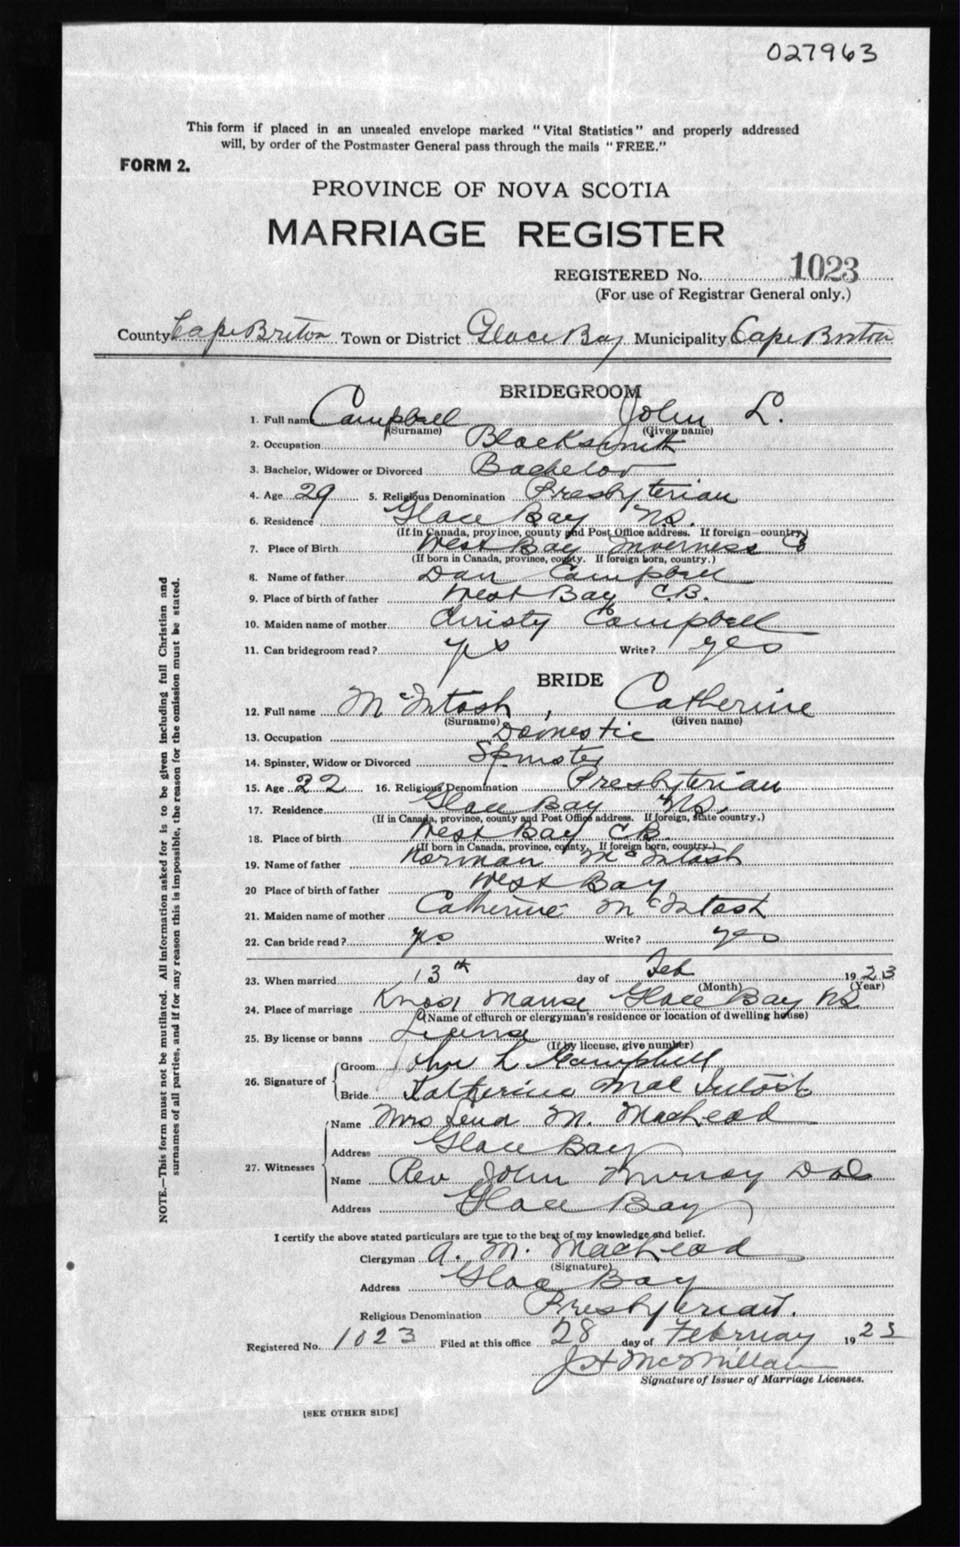 027963
This form if placed in an unsealed envelope marked "Vital Statistics" and properly addressed
will, by order of the Postmaster General pass through the mails "FREE."
FORM 2.
PROVINCE OF NOVA SCOTIA
MARRIAGE REGISTER
REGISTERED No. 1023
(For use of Registrar General only.)
County Cape Briton Town or District Glace Bay Municipality Cape Briton
BRIDEGROOM
1. Full name Campbell John L.
(Surname) (Given name)
2. Occupation Blacksmith
3. Bachelor, Widower or Divorced Bachelor
4. Age 29 5. Religious Denomination Presbyterian
6. Residence Glace Bay N.S.
(If in Canada, province, county and Post Office address. If foreign country)
7. Place of Birth West Bay Inverness Co
(If born in Canada, province, county. If foreign born, country.)
8. Name of father Dan Campbell
9. Place of birth of father West Bay C.B.
10. Maiden name of mother Christy Campbell
11. Can bridegroom read? yes Write? yes
BRIDE
12. Full name McIntosh, Catherine
(Surname) (Given name)
13. Occupation Domestic
14. Spinster, Widow or Divorced Spinster
15. Age 22 16. Religious Denomination Presbyterian
17. Residence Glace Bay N.S.
(If in Canada, province, county and Post Office address. If foreign, state country.)
18. Place of birth West Bay C.B.
(If born in Canada, province, county. If foreign born, country.)
19. Name of father Norman McIntosh
20 Place of birth of father West Bay
21. Maiden name of mother Catherine McIntosh
22. Can bride read? yes Write? yes
23. When married 13th day of Feb 1923
(Month) (Year)
24. Place of marriage Knox Manse Glace Bay NS
(Name of church or clergyman's residence or location of dwelling house)
25. By license or banns License
(If by license, give number)
26. Signature of
Groom John L Campbell
Bride Katherine MacIntosh
27. Witnesses
Name Mrs Lena M. MacLeod
Address Glace Bay
Name Rev John Murray
Address Glace Bay
I certify the above stated particulars are true to the best of my knowledge and belief.
Clergyman A. M. MacLeod
(Signature)
Address Glace Bay
Religious Denomination Presbyterian.
Registered No. 1023 Filed at this office 28 day of February 1923
J H McMillan
Signature of Issuer of Marriage Licenses.
[SEE OTHER SIDE]
NOTE.—This form must not be mutilated. All information asked for is to be given including full Christian and
surnames of all parties, and if for any reason this is impossible, the reason for the omission must be stated.